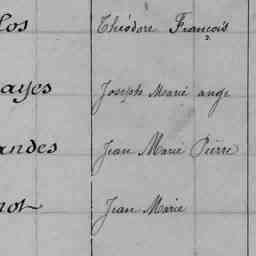 los Théodore François
ayes Joseph Marie ange
andes Jean Marie Pierre
not Jean Marie